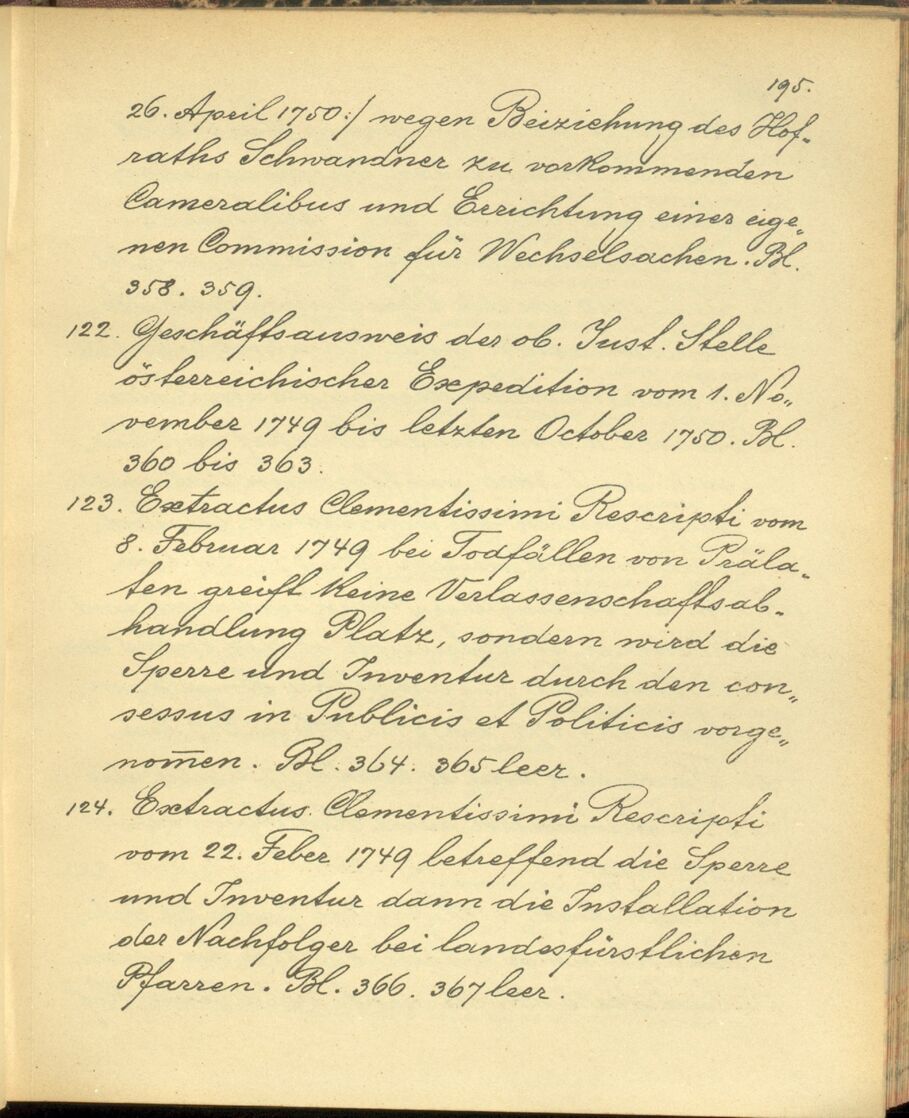 195.
26. April 1750:/ wegen Beiziehung des Hof„
raths Schwandner zu vorkommenden
Cameralibus und Errichtung einer eige„
nen Commission für Wechselsachen. Bl.
358. 359.
122. Geschäftsausweis der ob. Just. Stelle
österreichischer Expedition vom 1. No„
vember 1749 bis letzten October 1750. Bl.
360 bis 363.
123. Extractus Clementissimi Rescripti vom
8. Februar 1749 bei Todfällen von Präla„
ten greift keine Verlassenschaftsab„
handlung Platz, sondern wird die
Sperre und Inventur durch den con„
sessus in Publicis et Politicis vorge„
nom̅en. Bl. 364. 365 leer.
124. Extractus Clementissimi Rescripti
vom 22. Feber 1749 betreffend die Sperre
und Inventur dann die Installation
der Nachfolger bei landesfürstlichen
Pfarren. Bl. 366. 367 leer.